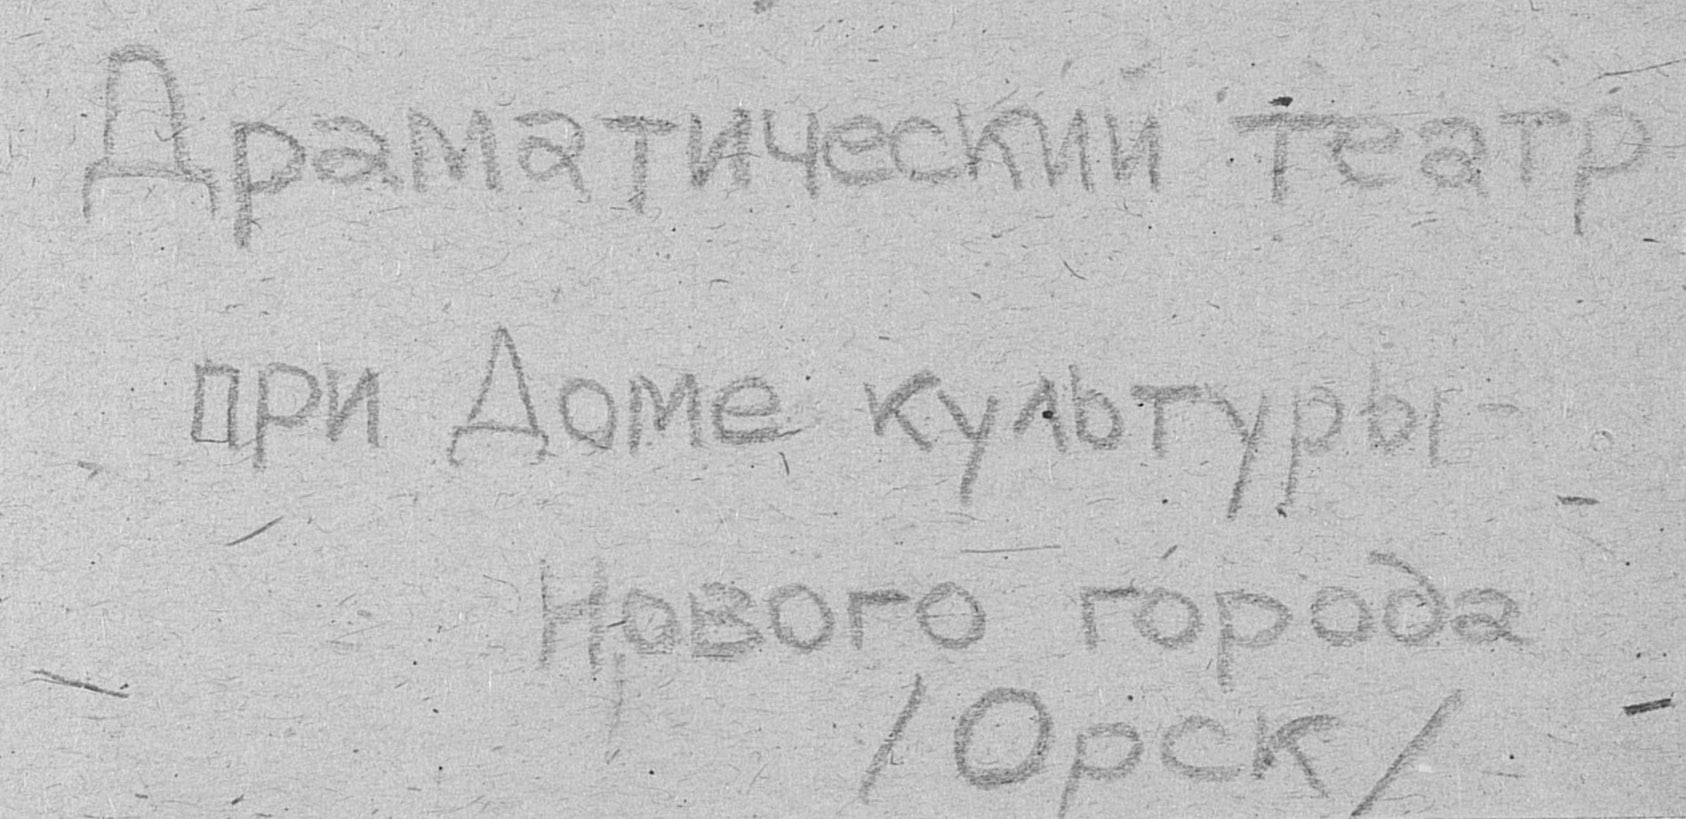 Драматический театр
при Доме культуры
Нового города
/Орск/